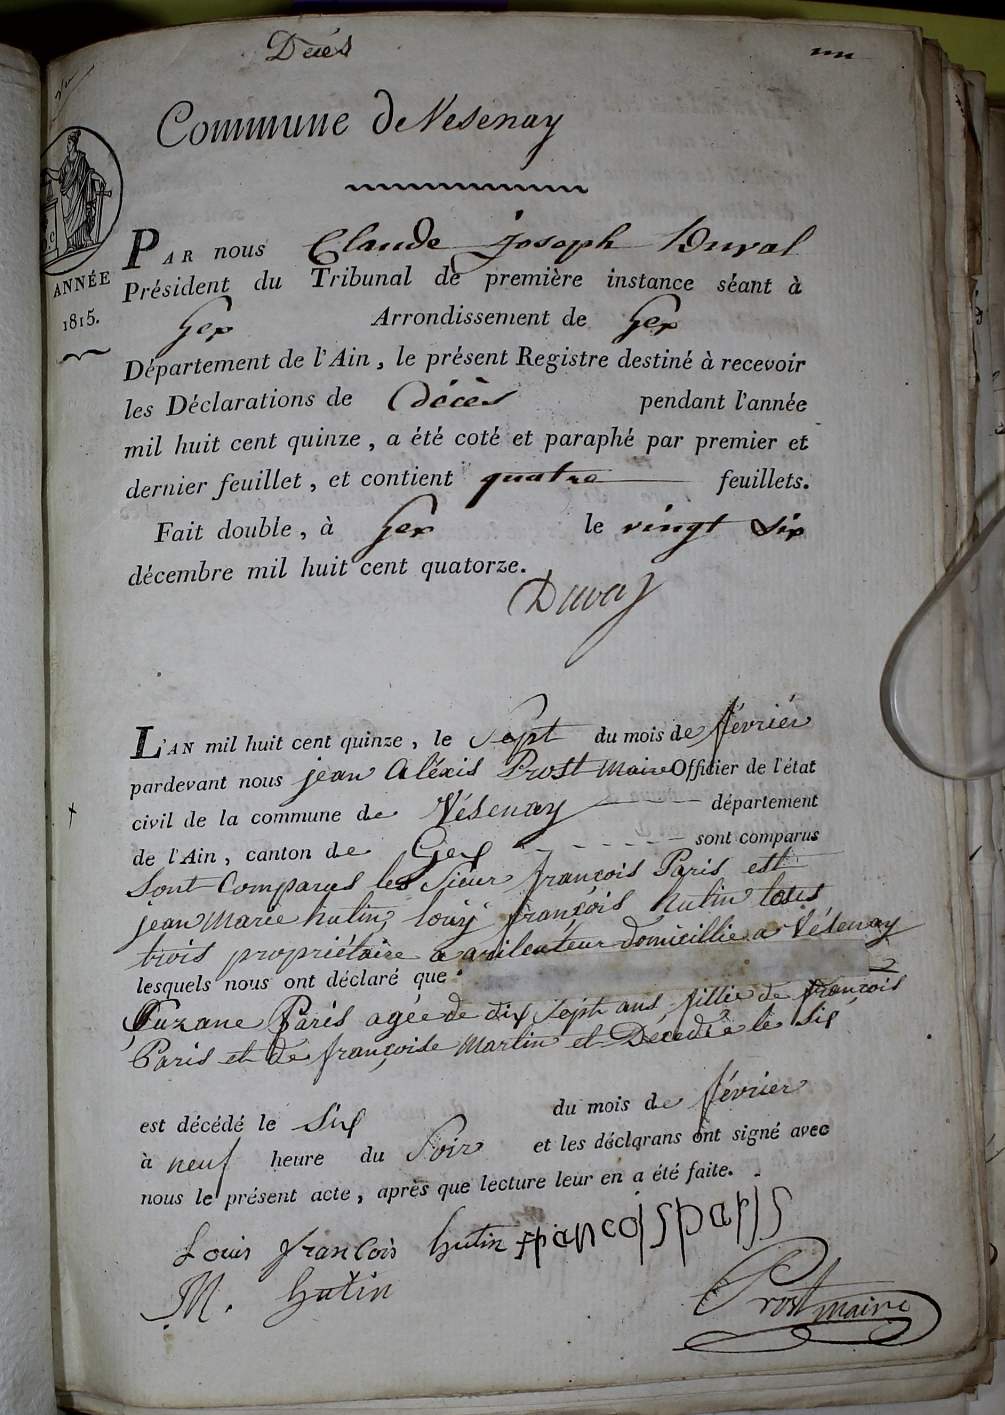 Décés
Commune de Vesenay
ANNÉE
1815.
PAR nous Claude Joseph Duval
Président du Tribunal de première instance séant à
Gex Arrondissement de Gex
Département de l'Ain, le présent Registre destiné à recevoir
les Déclarations de décès pendant l'année
mil huit cent quinze, a été coté et paraphé par premier et
dernier feuillet, et contient quatre feuillets.
Fait double, à Gex le vingt six
décembre mil huit cent quatorze.
Duval
L'AN mil huit cent quinze, le Sept du mois de février
pardevant nous jean aléxis Prost maire Officier de l'état
civil de la commune de Vésenay département
de l'Ain, canton de Gex sont comparus
Sont Comparus les Sieur françois Paris est
jean Marie hutin, louiy françois hutin tous
trois propriétaire a domicillie a Vésenay
lesquels nous ont déclaré que
Suzane Paris agée de dix Sept ans, fillie de françois
Paris et de françoise Martin et Decedée le Six
est décédé le Six du mois de février
à neuf heure du Soir et les déclarans ont signé avec
nous le présent acte, après que lecture leur en a été faite.
Louis francois hutin francoisparis
M. hutin
Prost maire